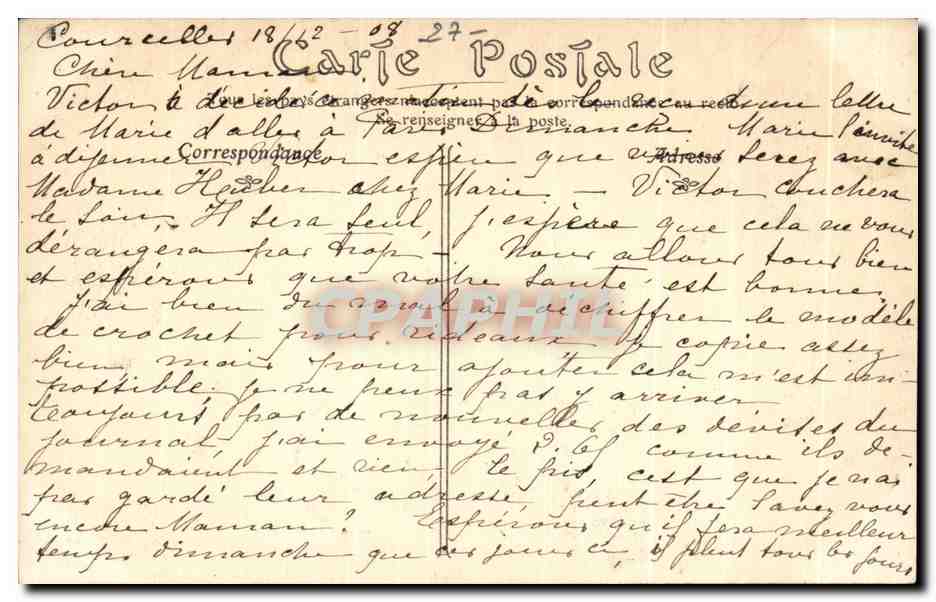 Courcelles 18/12 - 08 27-
Carte Postale
Chère Maman
Victor à décidé à lettre
Tous les pays étrangers n'acceptent pas la correspondance au recto
de Marie d'aller à Paris Dimanche Marie l'invite
Se renseigner à la poste.
à déjeuner, Victor espère que vous serez avec
Correspondance Adresse
Madame Huber chez Marie - Victor couchera
le soir, Il sera seul, j'espère que cela ne vous
dérangera pas trop - Nous allons tous bien
et espérons que votre santé est bonne.
J'ai bien du mal à déchiffrer le modèle
de crochet pour rideaux je copie assez
bien mais pour ajouter cela m'est im-
possible je ne peux pas y arriver
Toujours pas de nouvelles des dévises du
journal j'ai envoyé 2.65 comme ils de-
mandaient et rien - Le pis, c'est que je n'ai
pas gardé leur adresse, peut être l'avez vous
encore Maman? Espérons qu'il fera meilleur
temps dimanche que ces jours ci, il pleut tous les jours
CPAPHIL